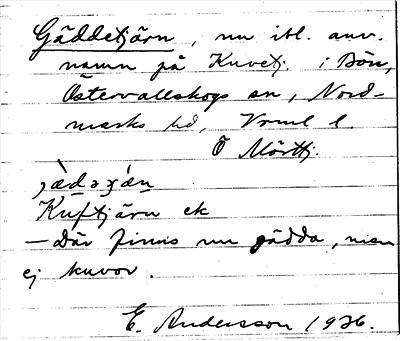 Gäddetjärn, nu ibl. anv.
namn på Kuvetj. i Bön,
Östervallskogs sn, Nord-
marks hd, Vrml l.
Ö Mörttj.
jæ̀dəʒǽn
Kuftjärn ek
— Där finns nu gädda, men
ej kuvor.
E. Andersson 1926.